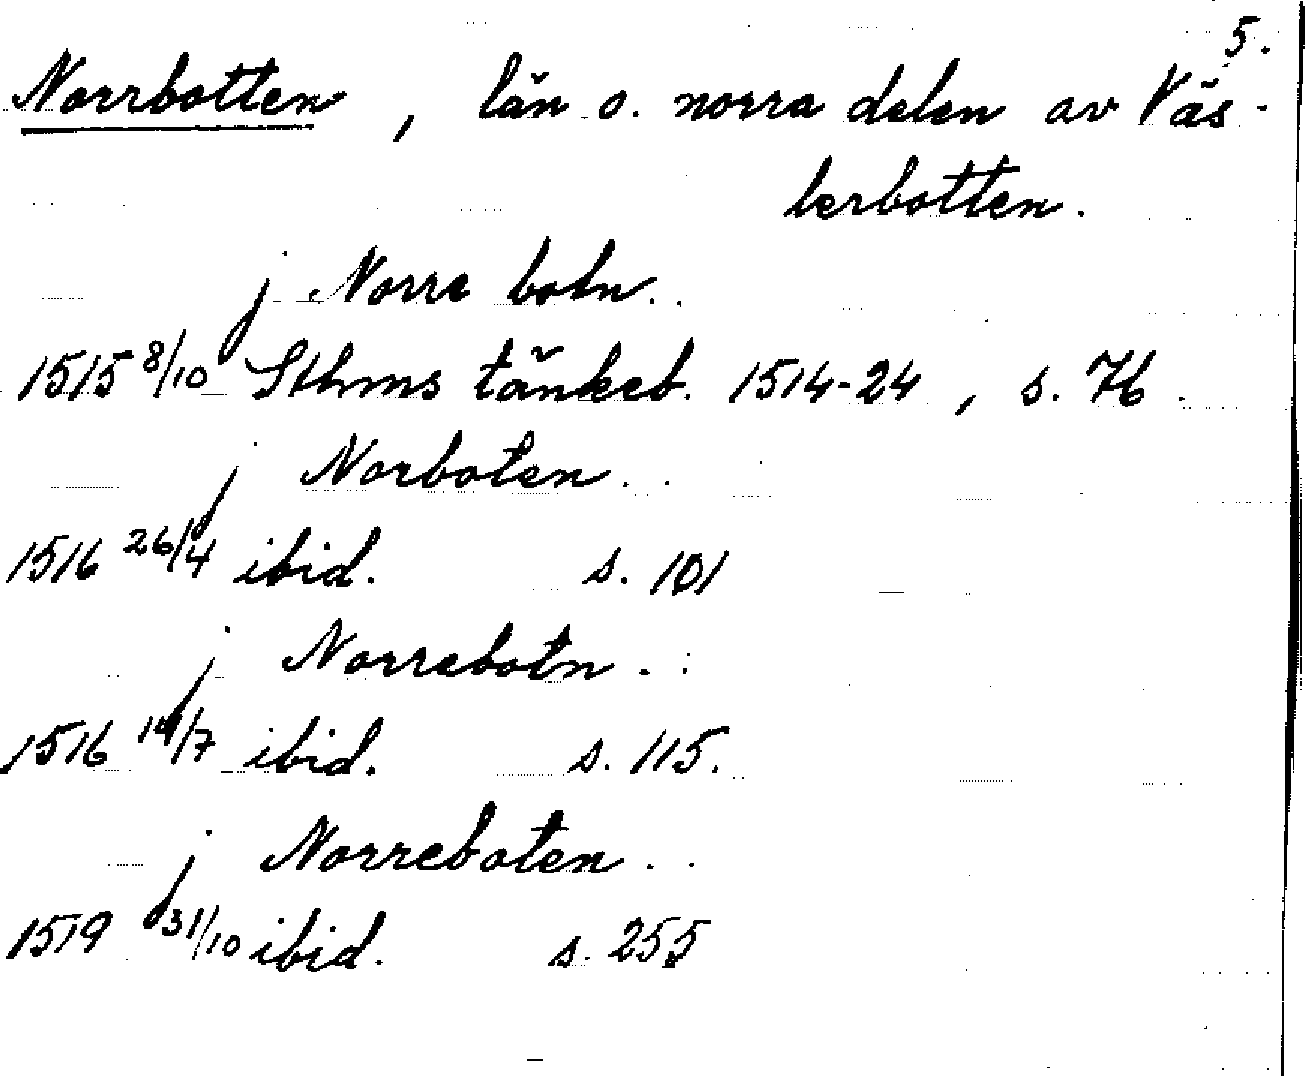 5.
Norrbotten, län o. norra delen av Väs-
terbotten.
j Norre botn.
1515 8/10 Sthms tänkeb. 1514-24, s. 76.
j Norboten.
1516 26/4 ibid. s. 101
j Norrebotn.
1516 14/7 ibid. s. 115.
j Norreboten.
1519 31/10 ibid. s. 255